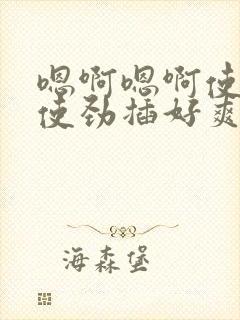 嗯啊嗯啊使
使劲插好爽
海森堡